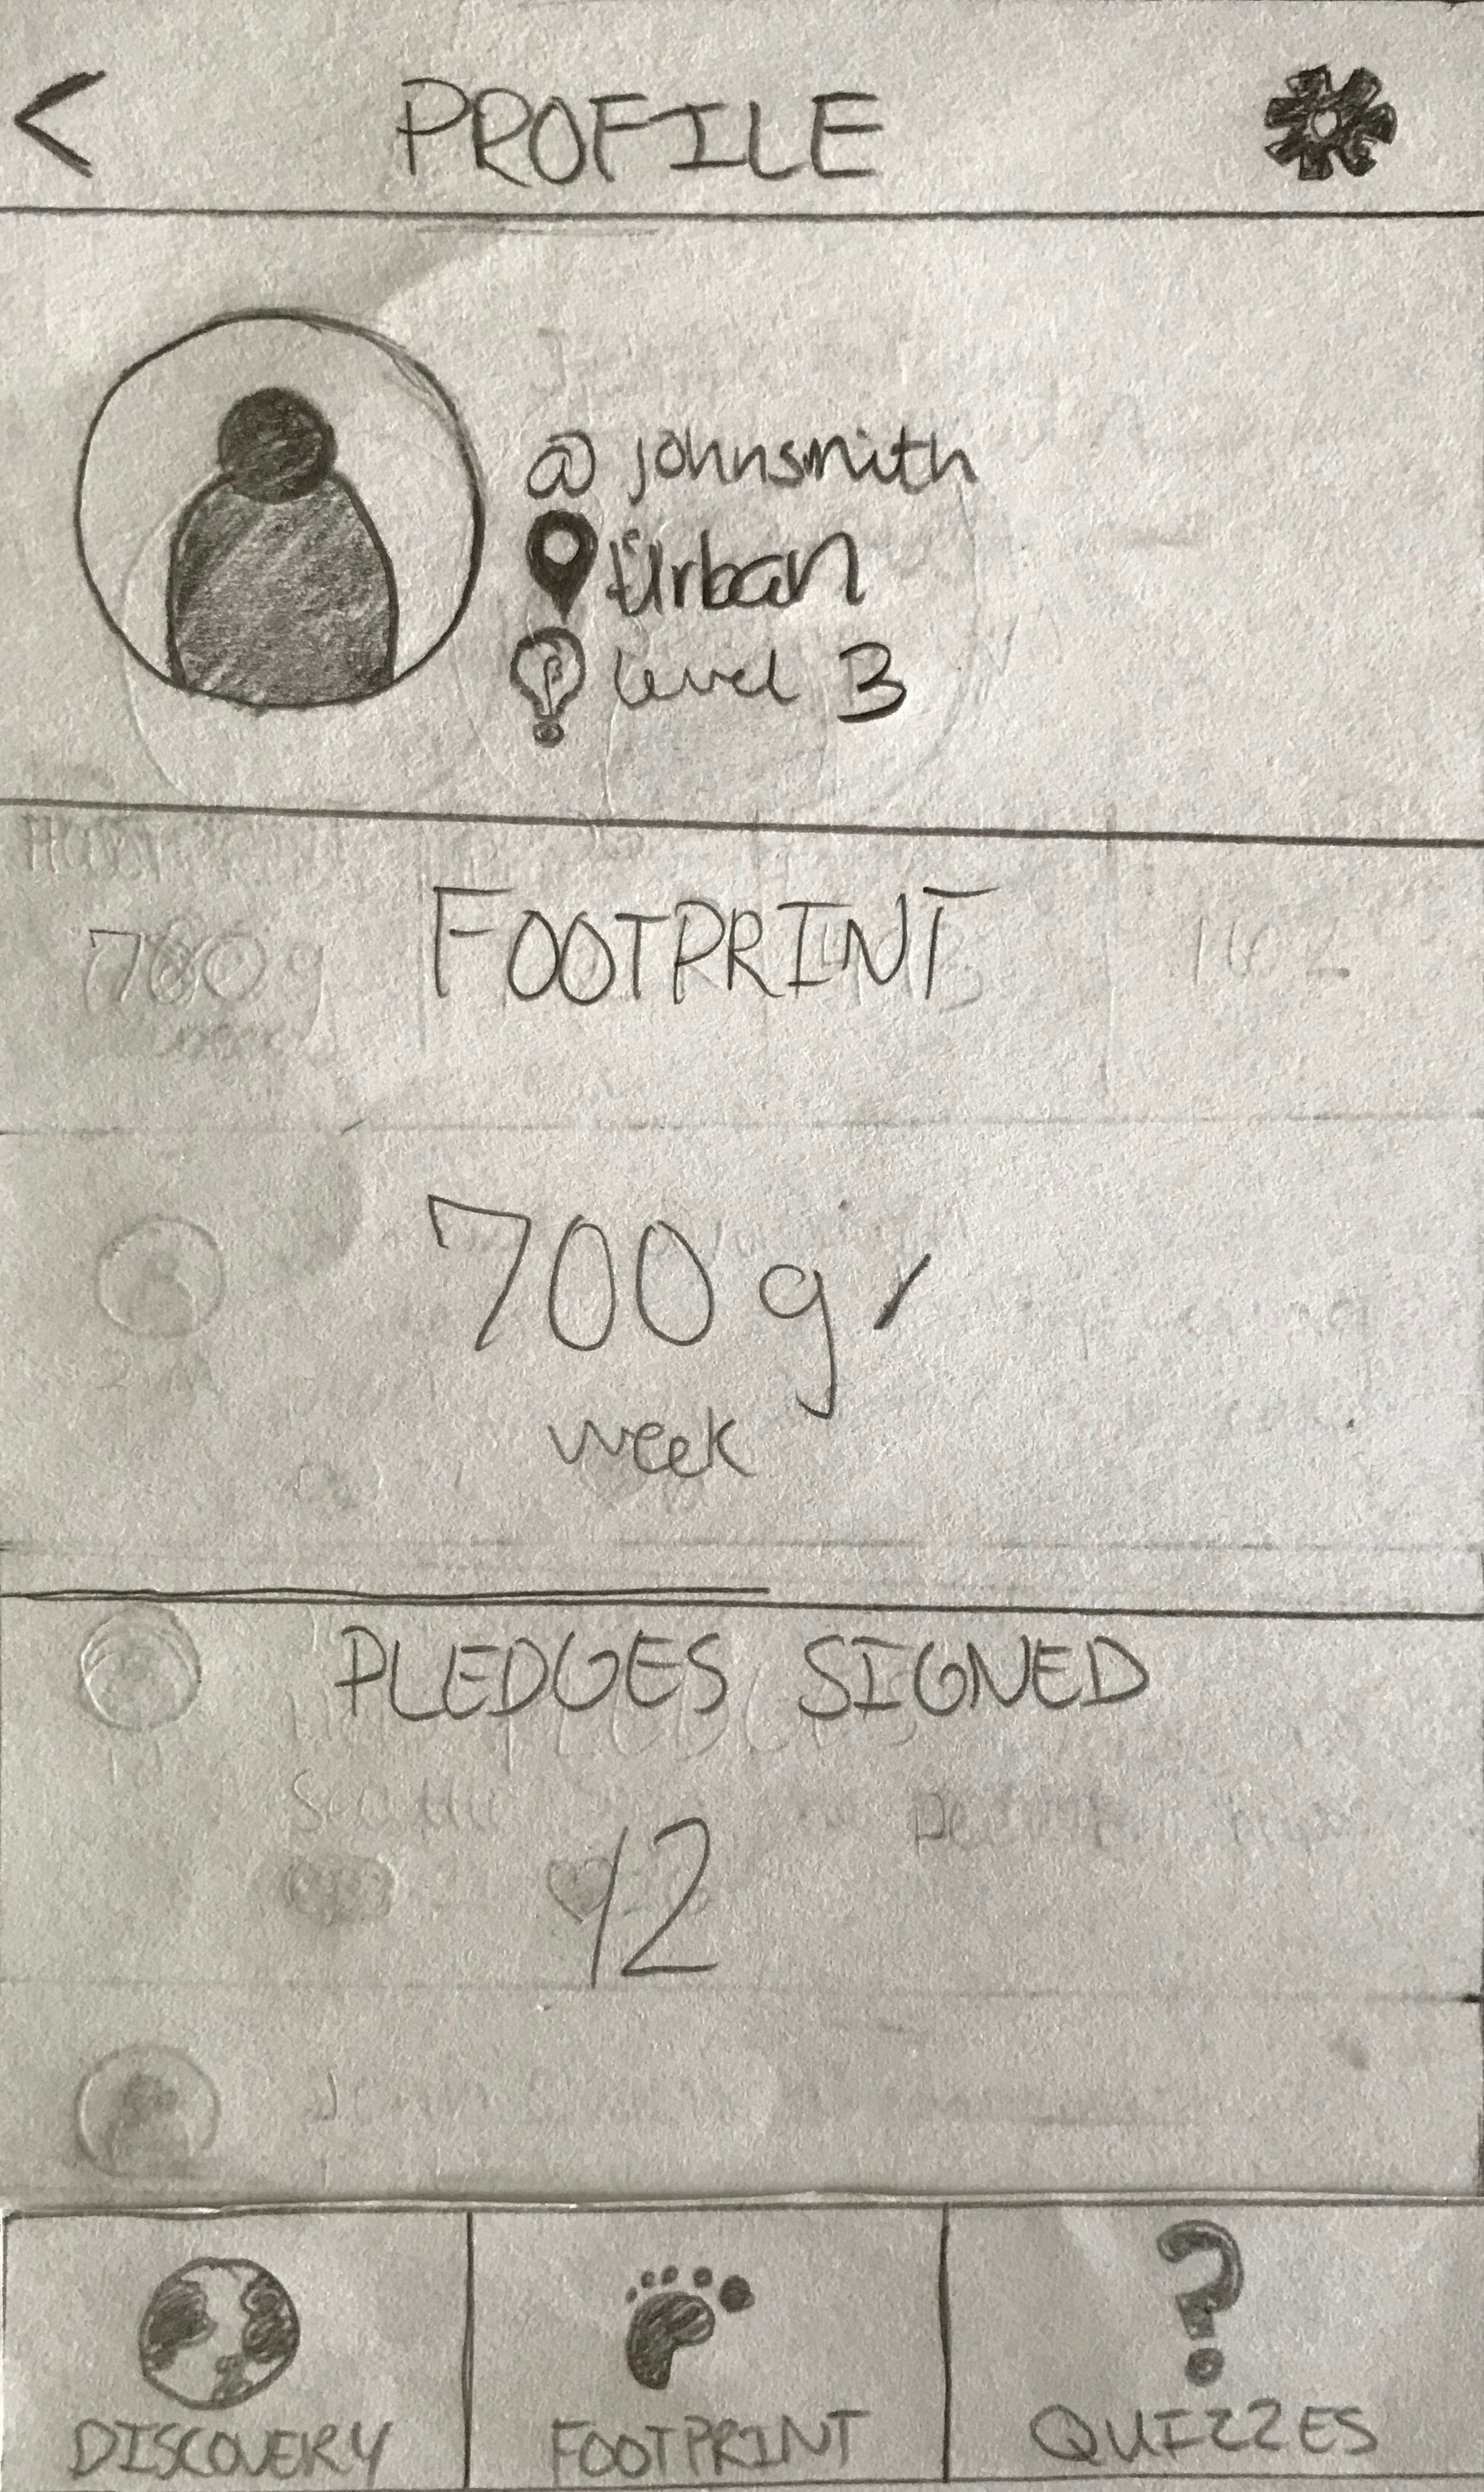 < PROFILE
@johnsmith
Urban
level 3
FOOTPRINT
700g/
week
PLEDGES SIGNED
12
DISCOVERY FOOTPRINT ? QUIZZES